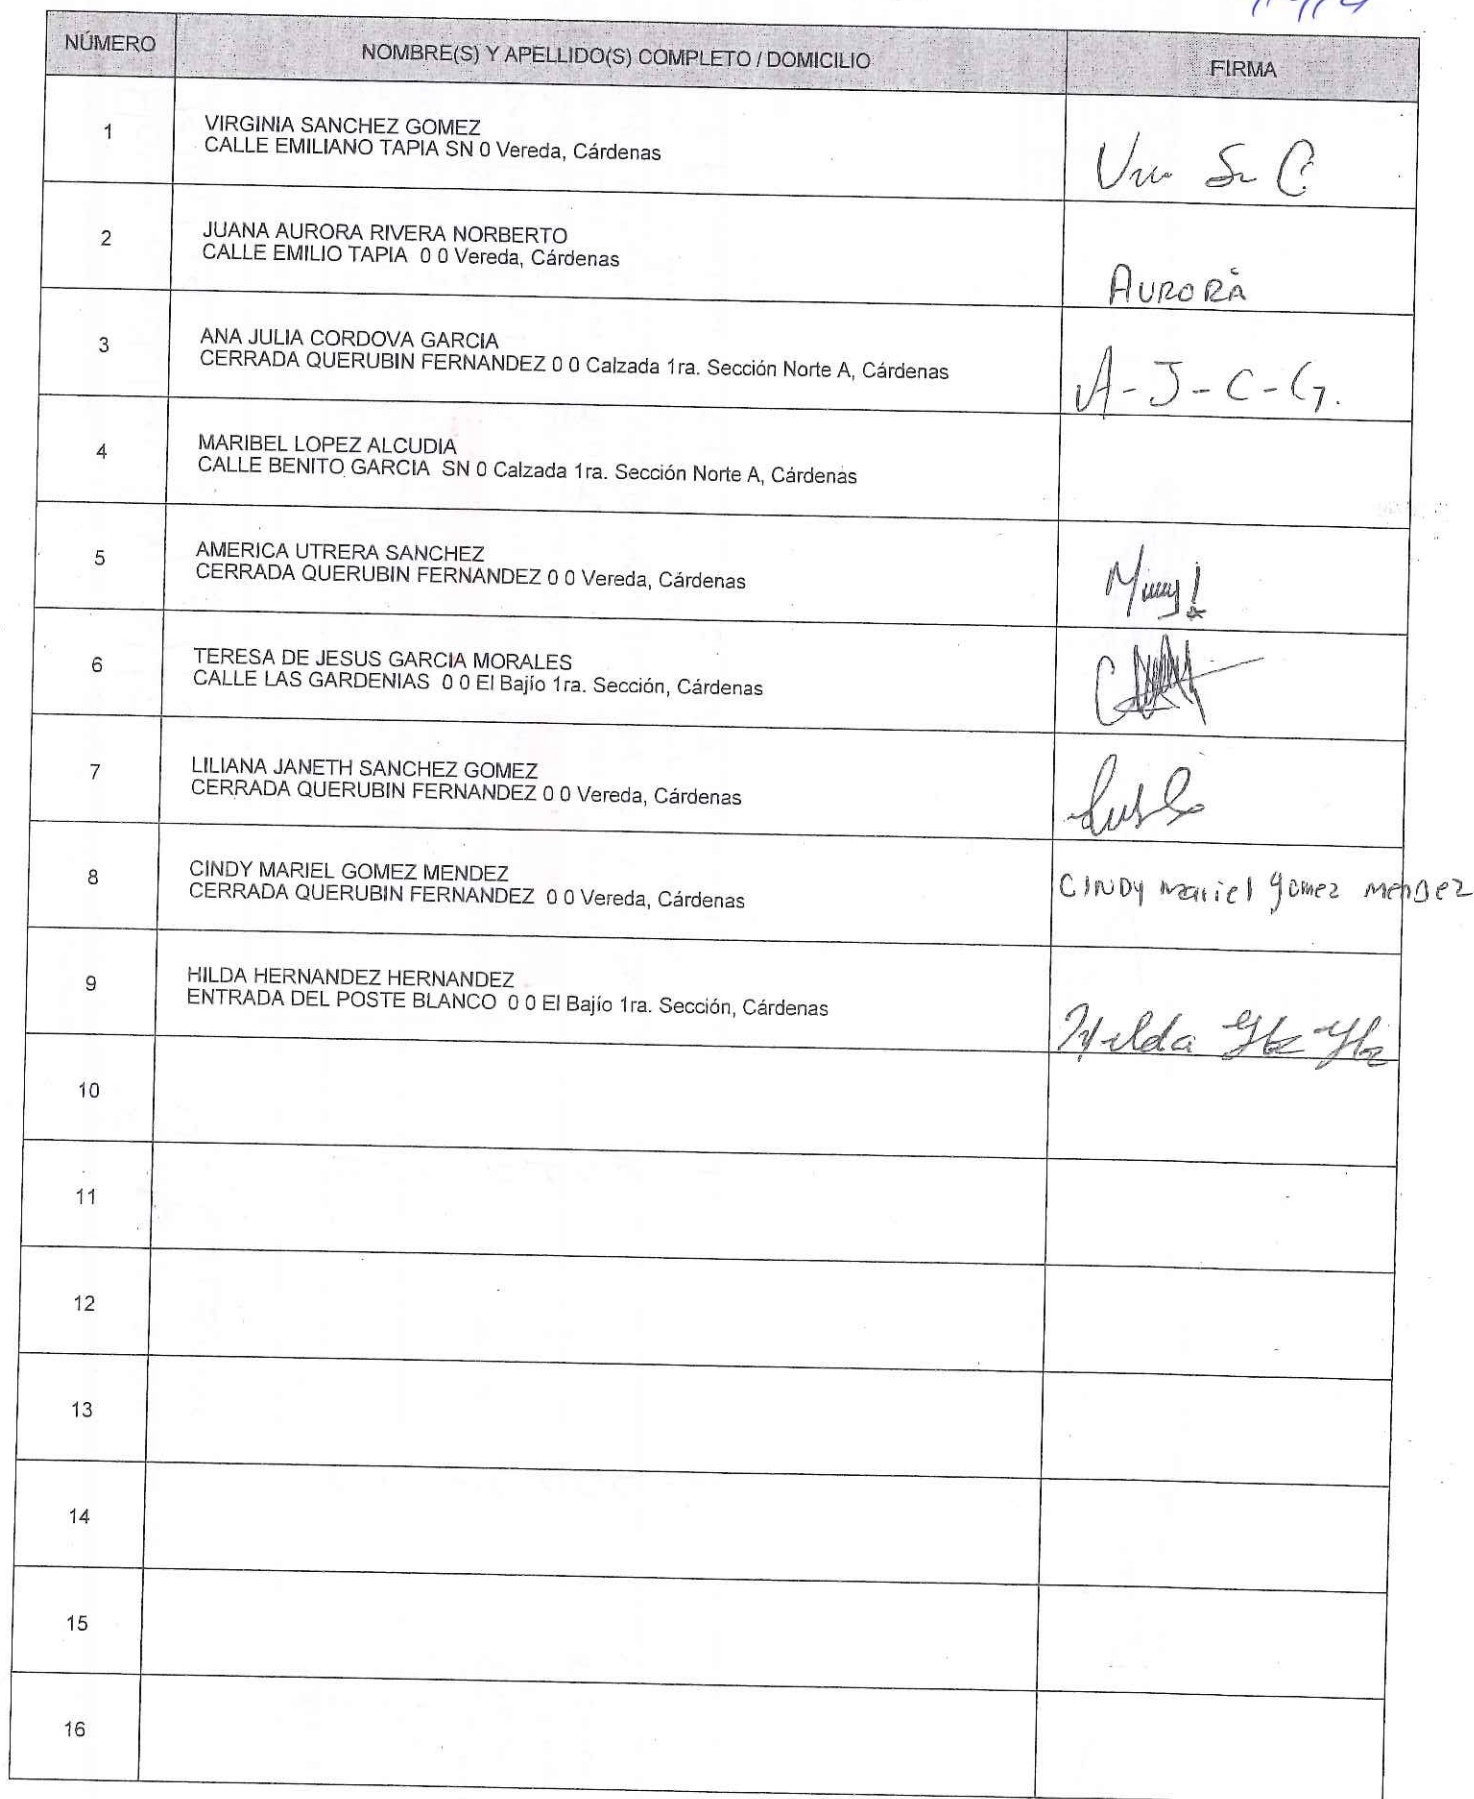 NÚMERO
NOMBRE(S) Y APELLIDO(S) COMPLETO / DOMICILIO
FIRMA
1
VIRGINIA SANCHEZ GOMEZ
CALLE EMILIANO TAPIA SN 0 Vereda, Cárdenas
2
JUANA AURORA RIVERA NORBERTO
CALLE EMILIO TAPIA 0 0 Vereda, Cárdenas
AURORA
3
ANA JULIA CORDOVA GARCIA
CERRADA QUERUBIN FERNANDEZ 0 0 Calzada 1ra. Sección Norte A, Cárdenas
A-J-C-G.
4
MARIBEL LOPEZ ALCUDIA
CALLE BENITO GARCIA SN 0 Calzada 1ra. Sección Norte A, Cárdenas
5
AMERICA UTRERA SANCHEZ
CERRADA QUERUBIN FERNANDEZ 0 0 Vereda, Cárdenas
6
TERESA DE JESUS GARCIA MORALES
CALLE LAS GARDENIAS 0 0 El Bajío 1ra. Sección, Cárdenas
7
LILIANA JANETH SANCHEZ GOMEZ
CERRADA QUERUBIN FERNANDEZ 0 0 Vereda, Cárdenas
8
CINDY MARIEL GOMEZ MENDEZ
CERRADA QUERUBIN FERNANDEZ 0 0 Vereda, Cárdenas
CINDY Mariel Gomez MenDez
9
HILDA HERNANDEZ HERNANDEZ
ENTRADA DEL POSTE BLANCO 0 0 El Bajío 1ra. Sección, Cárdenas
Hilda Hz Hz
10
11
12
13
14
15
16